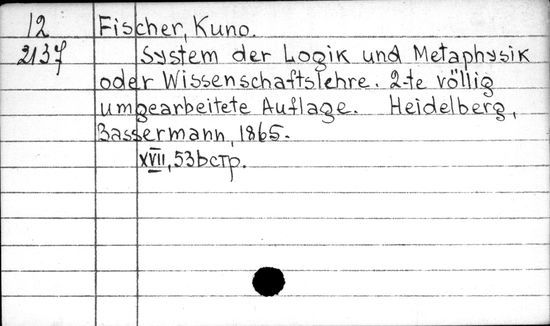 12 Fischer, Kuno.
2137 System der Logik und Metaphysik
oder Wissenschaftslehre. 2-te völlig
umgearbeitete Auflage. Heidelberg,
Bassermann, 1865.
XVII, 536 стр.